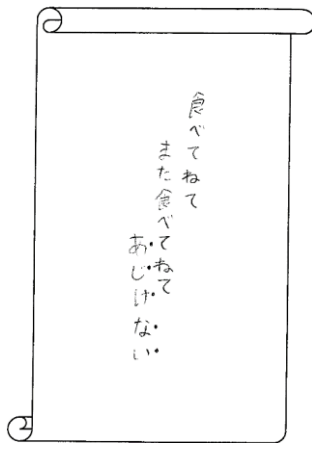 食べてねて
また食べてねて
あじけない